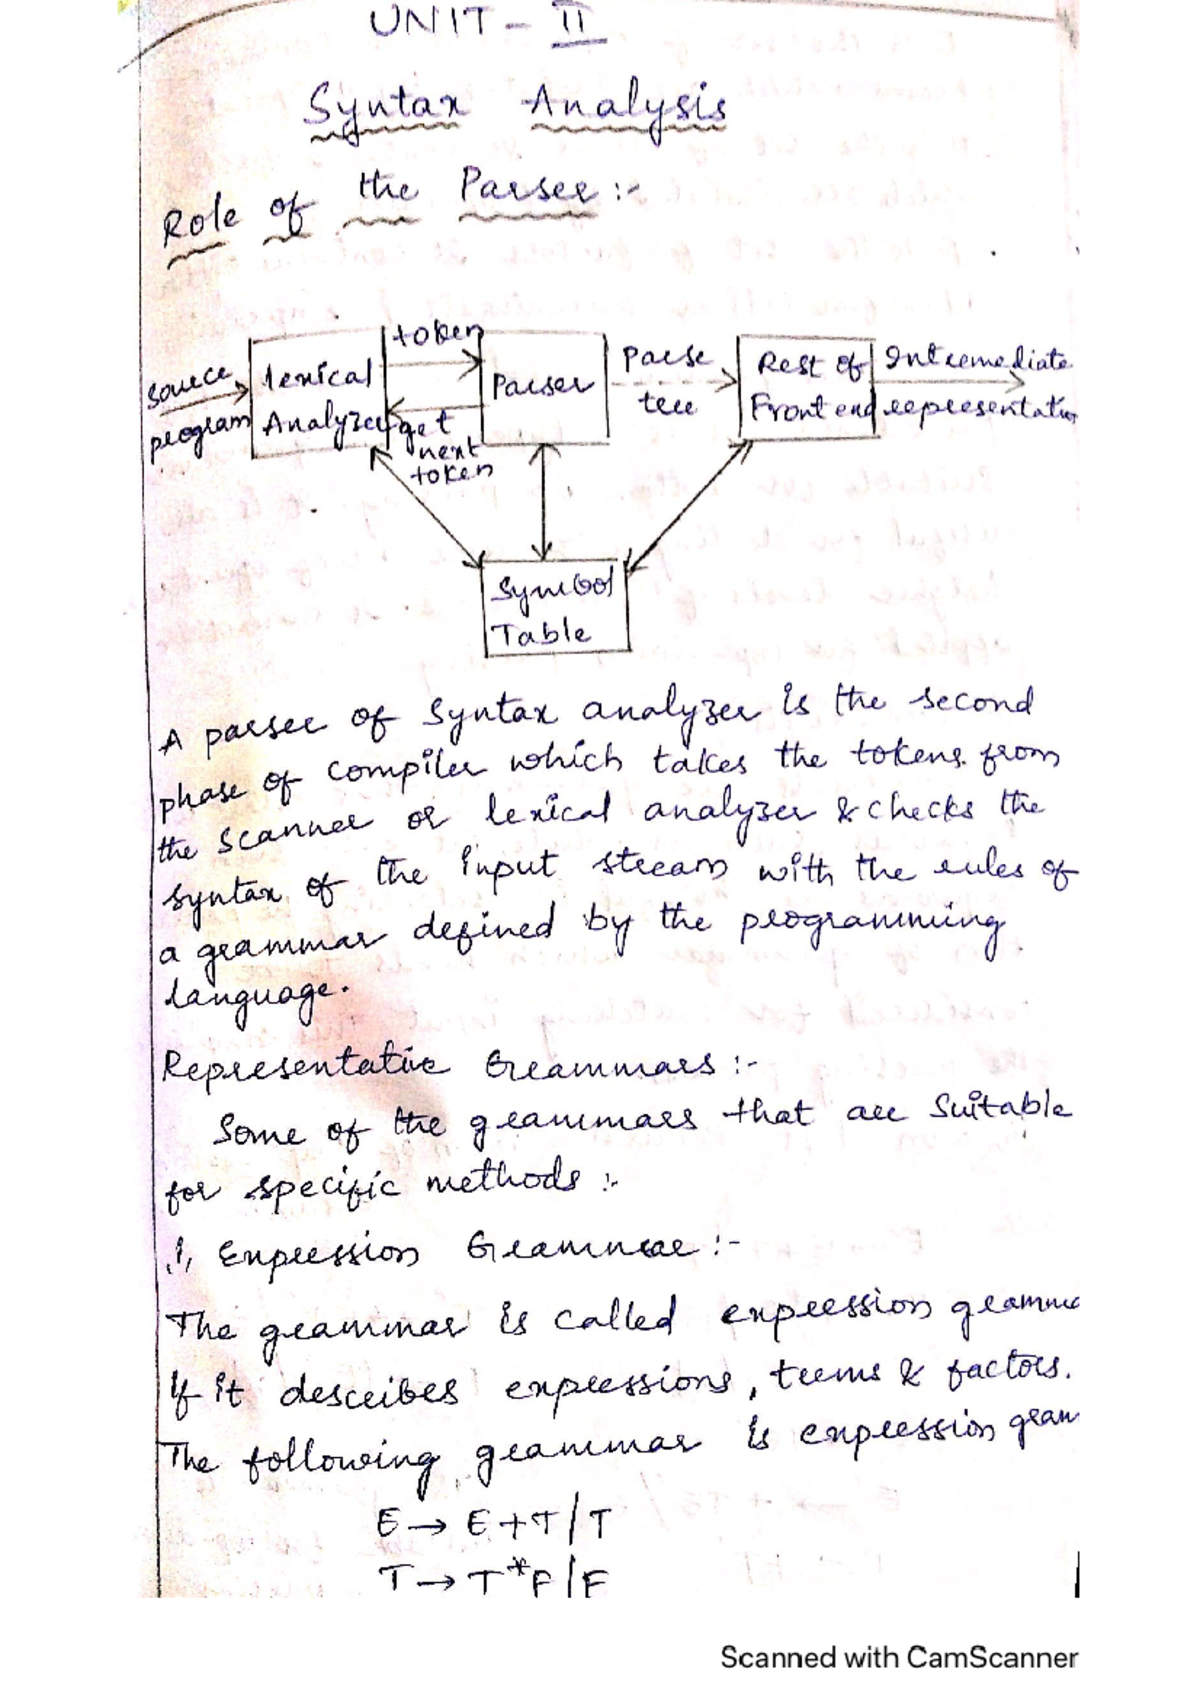 UNIT - II
Syntax Analysis
Role of the Parser :-
source
program
lexical
Analyzer
token
get
next
token
Parser
Parse
tree
Rest of
Front end
Intermediate
representation
Symbol
Table
A parser of Syntax analyzer is the second
phase of compiler which takes the tokens from
the scanner or lexical analyzer & checks the
syntax of the input stream with the rules of
a grammar defined by the programming
language.
Representative Grammars :-
Some of the grammars that are suitable
for specific methods :-
1, Expression Grammar :-
The grammar is called expression gramma
if it describes expressions, terms & factors.
The following grammar is expression gram
E → E+T/T
T → T*F/F
Scanned with CamScanner